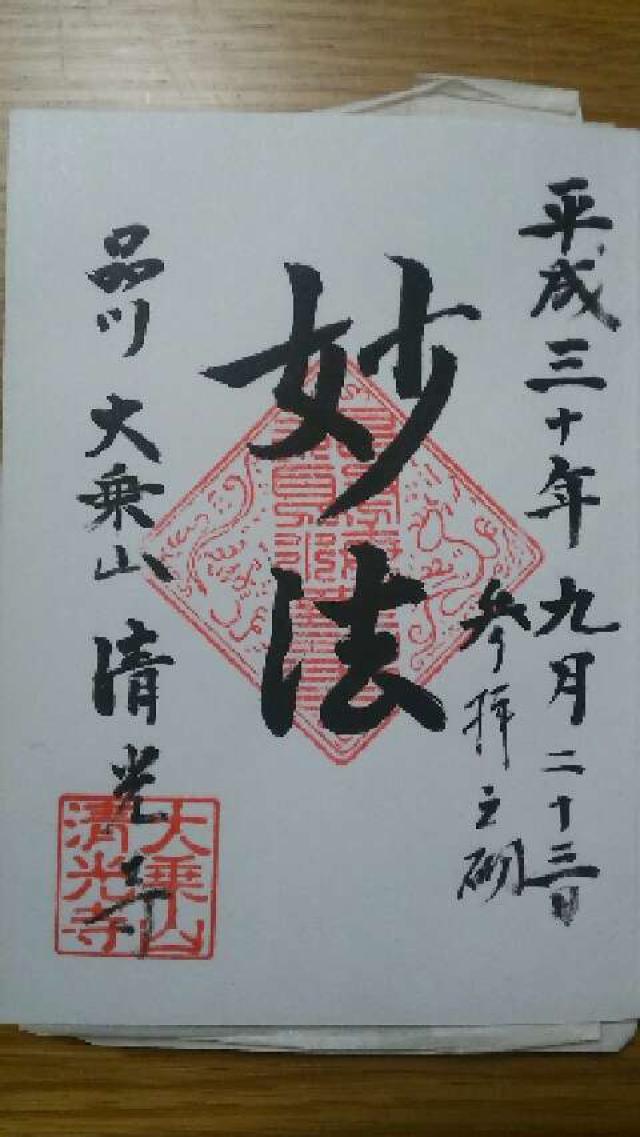 平成三十年九月二十三日
参拝之砌
妙法
品川 大乗山 清光寺
大乗山
清光寺